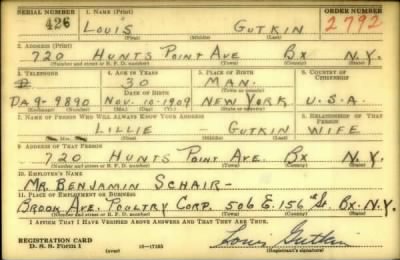 SERIAL NUMBER 1. NAME (Print) ORDER NUMBER
426 LOUIS GUTKIN 2792
(First) (Middle) (Last)
2. ADDRESS (Print)
720 HUNTS POINT AVE BX N.Y.
(Number and street or R. F. D. number) (Town) (County) (State)
3. TELEPHONE 4. AGE IN YEARS 5. PLACE OF BIRTH 6. COUNTRY OF CITIZENSHIP
30 MAN.
DA9-9890 NOV. 10-1909 NEW YORK U.S.A.
(Exchange) (Number) (Mo.) (Day) (Yr.) (State or country)
7. NAME OF PERSON WHO WILL ALWAYS KNOW YOUR ADDRESS 8. RELATIONSHIP OF THAT PERSON
LILLIE - GUTKIN WIFE
(Mr., Mrs., Miss) (First) (Middle) (Last)
9. ADDRESS OF THAT PERSON
720 HUNTS POINT AVE. BX N.Y.
(Number and street or R. F. D. number) (Town) (County) (State)
10. EMPLOYER'S NAME
MR. BENJAMIN SCHAIR-
11. PLACE OF EMPLOYMENT OR BUSINESS
BROOK AVE. POULTRY CORP. 506 E. 156th St. BX. N.Y.
(Number and street or R. F. D. number) (Town) (County) (State)
I AFFIRM THAT I HAVE VERIFIED ABOVE ANSWERS AND THAT THEY ARE TRUE.
REGISTRATION CARD
D. S. S. Form 1 (over) 16-17105 Louis Gutkin
(Registrant's signature)